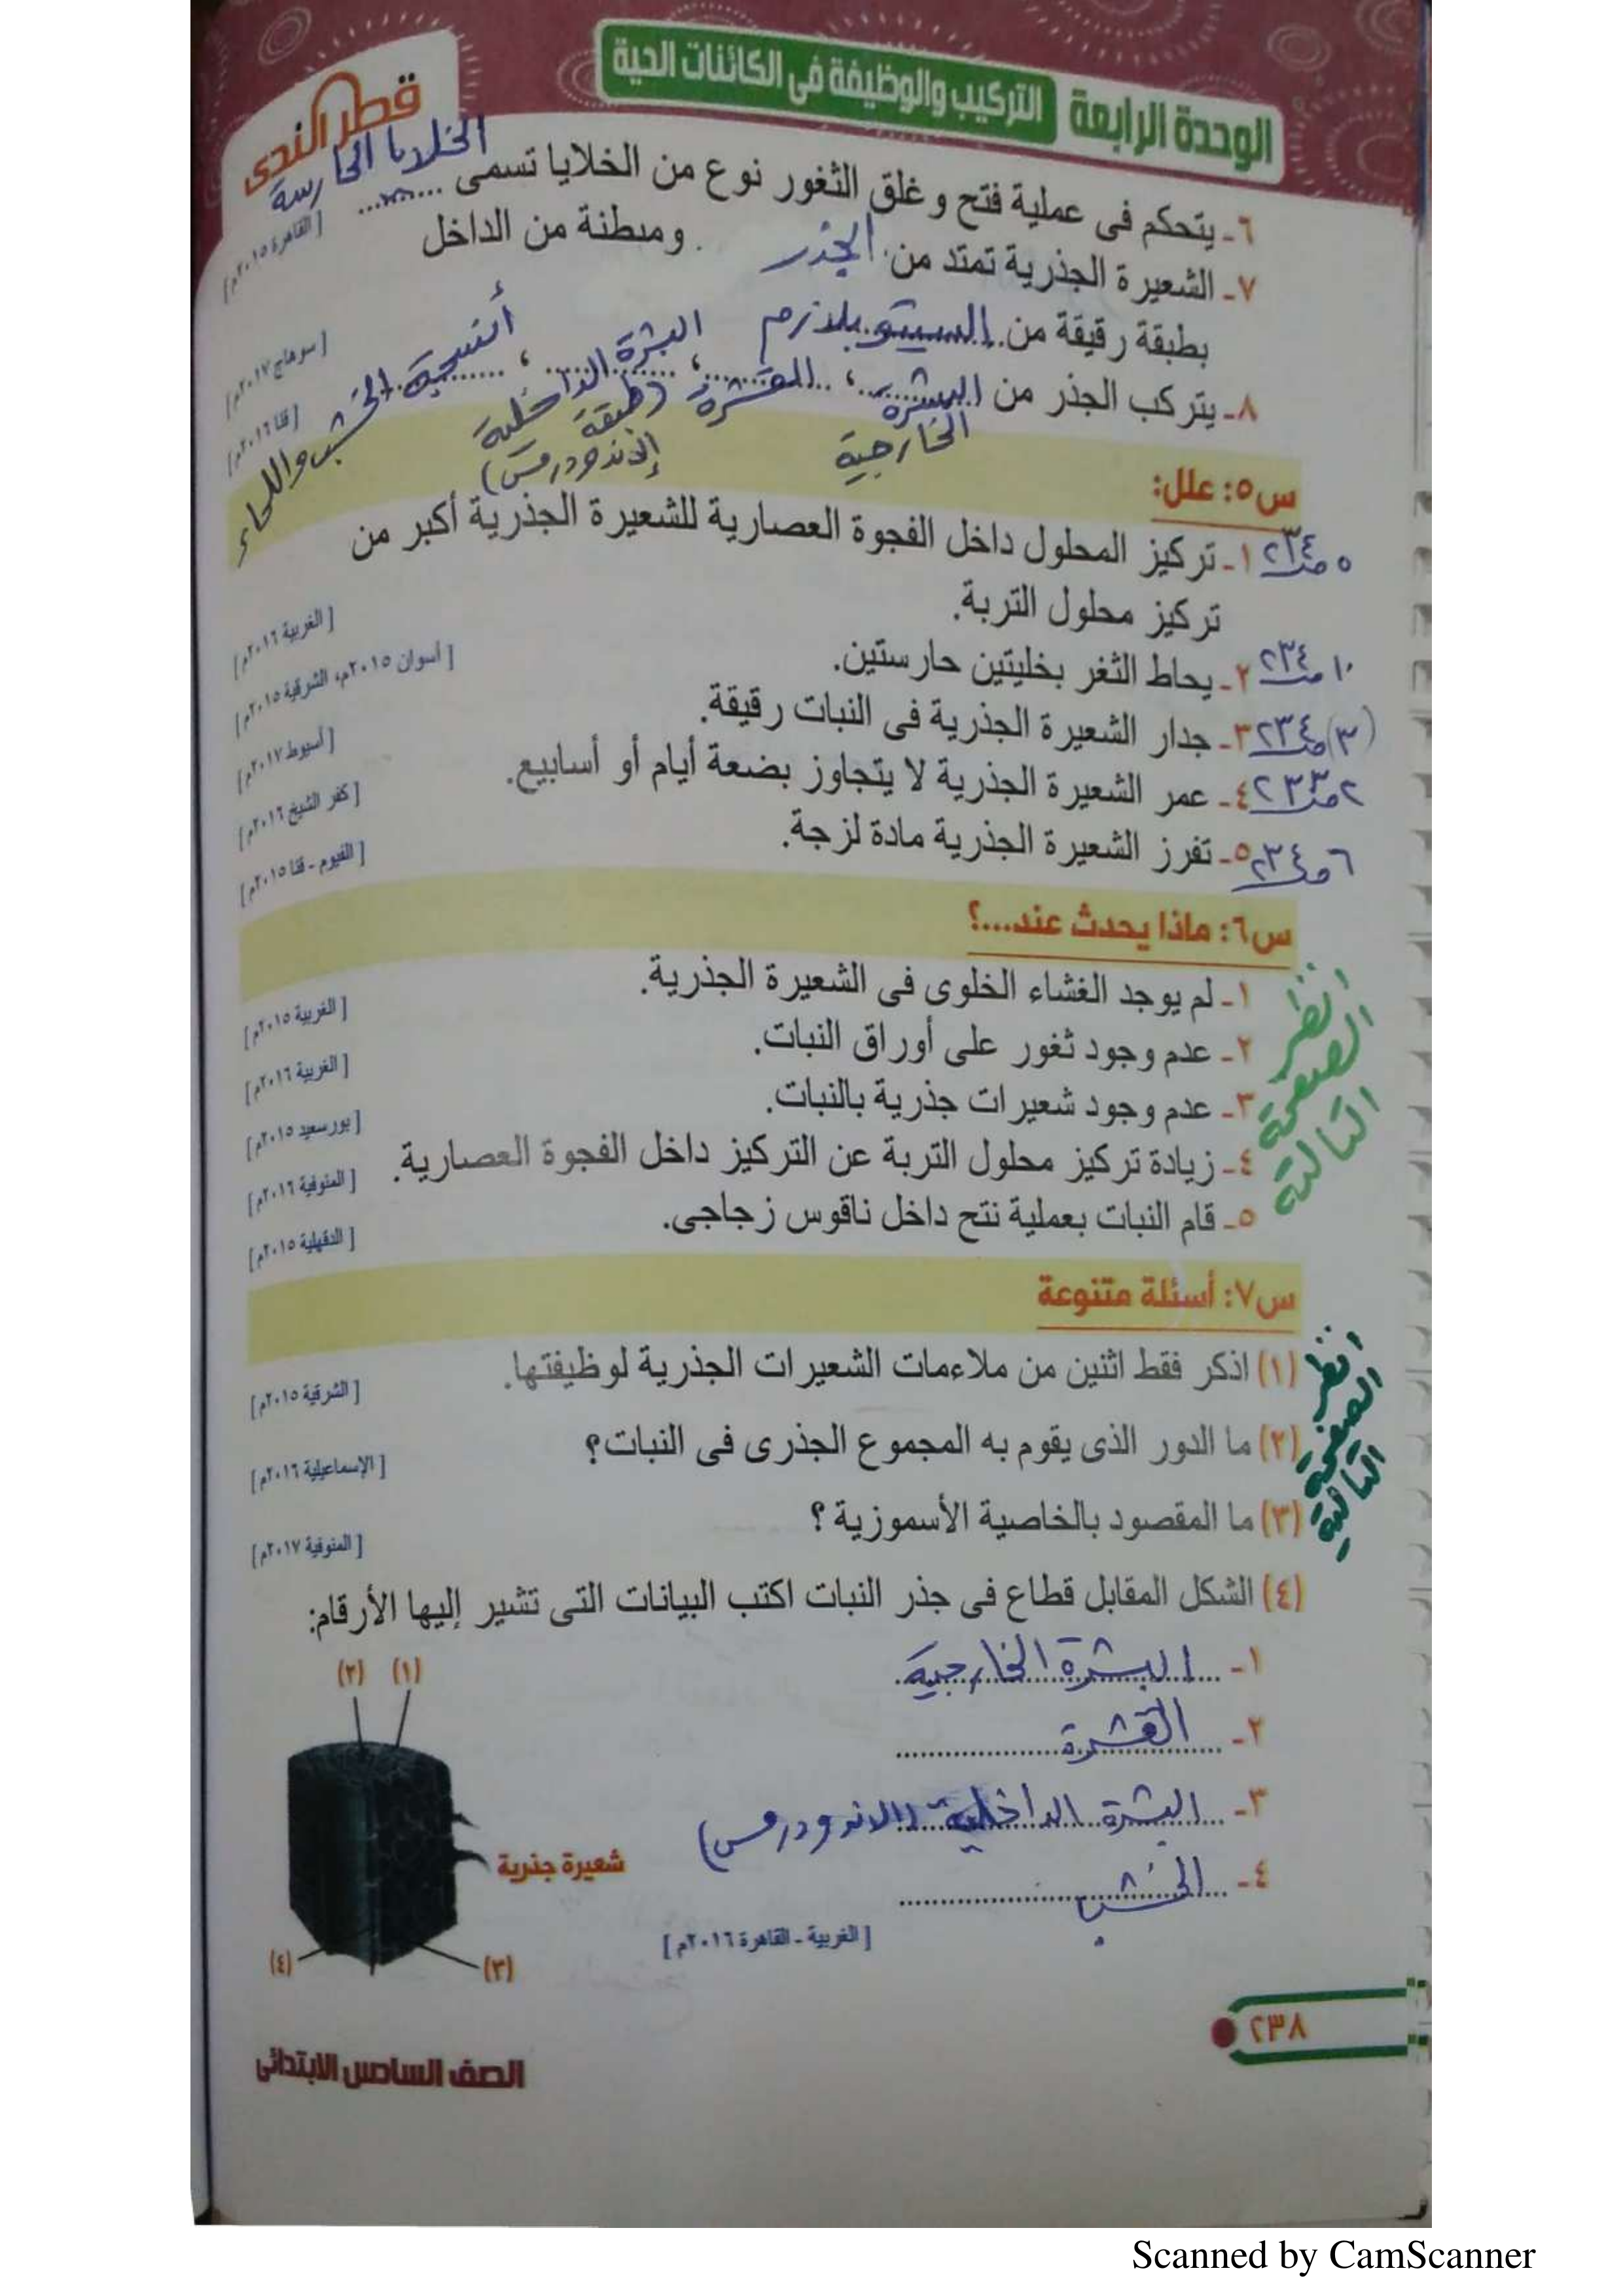 الوحدة الرابعة التركيب والوظيفة فى الكائنات الحية
قطر الندى
٦- يتحكم فى عملية فتح وغلق الثغور نوع من الخلايا تسمى الخلايا الحارسة
[القاهرة ٢٠١٥م]
٧- الشعيرة الجذرية تمتد من الجذر ومبطنة من الداخل
بطبقة رقيقة من السيتوبلازم
[سوهاج ٢٠١٧م]
٨- يتركب الجذر من البشرة الخارجية ، القشرة ، البشرة الداخلية (طبقة الإندودرمس) ، أنسجة الخشب واللحاء
[قنا ٢٠١٦م]
س٥: علل:
٥ صـ ٢٣٤ ١- تركيز المحلول داخل الفجوة العصارية للشعيرة الجذرية أكبر من
تركيز محلول التربة.
[الغربية ٢٠١٦م]
١٠ صـ ٢٣٤ ٢- يحاط الثغر بخليتين حارستين.
[أسوان ٢٠١٥م، الشرقية ٢٠١٥م]
(٣) صـ ٢٣٤ ٣- جدار الشعيرة الجذرية فى النبات رقيقة.
[أسيوط ٢٠١٧م]
٢ صـ ٢٣٣ ٤- عمر الشعيرة الجذرية لا يتجاوز بضعة أيام أو أسابيع.
[كفر الشيخ ٢٠١٦م]
٦ صـ ٢٣٤ ٥- تفرز الشعيرة الجذرية مادة لزجة.
[الفيوم - قنا ٢٠١٥م]
س٦: ماذا يحدث عند....؟
انظر الصفحة التالية
١- لم يوجد الغشاء الخلوى فى الشعيرة الجذرية.
[الغربية ٢٠١٥م]
٢- عدم وجود ثغور على أوراق النبات.
[الغربية ٢٠١٦م]
٣- عدم وجود شعيرات جذرية بالنبات.
[بورسعيد ٢٠١٥م]
٤- زيادة تركيز محلول التربة عن التركيز داخل الفجوة العصارية.
[المنوفية ٢٠١٦م]
٥- قام النبات بعملية نتح داخل ناقوس زجاجى.
[الدقهلية ٢٠١٥م]
س٧: أسئلة متنوعة
انظر الصفحة التالية
(١) اذكر فقط اثنين من ملاءمات الشعيرات الجذرية لوظيفتها.
[الشرقية ٢٠١٥م]
(٢) ما الدور الذى يقوم به المجموع الجذرى فى النبات؟
[الإسماعيلية ٢٠١٦م]
(٣) ما المقصود بالخاصية الأسموزية ؟
[المنوفية ٢٠١٧م]
(٤) الشكل المقابل قطاع فى جذر النبات اكتب البيانات التى تشير إليها الأرقام:
١- البشرة الخارجية
٢- القشرة
٣- البشرة الداخلية (الاندودرمس)
٤- الخشب
(١) (٢)
شعيرة جذرية
(٣) (٤)
[الغربية - القاهرة ٢٠١٦م]
٢٣٨
الصف السادس الابتدائى
Scanned by CamScanner